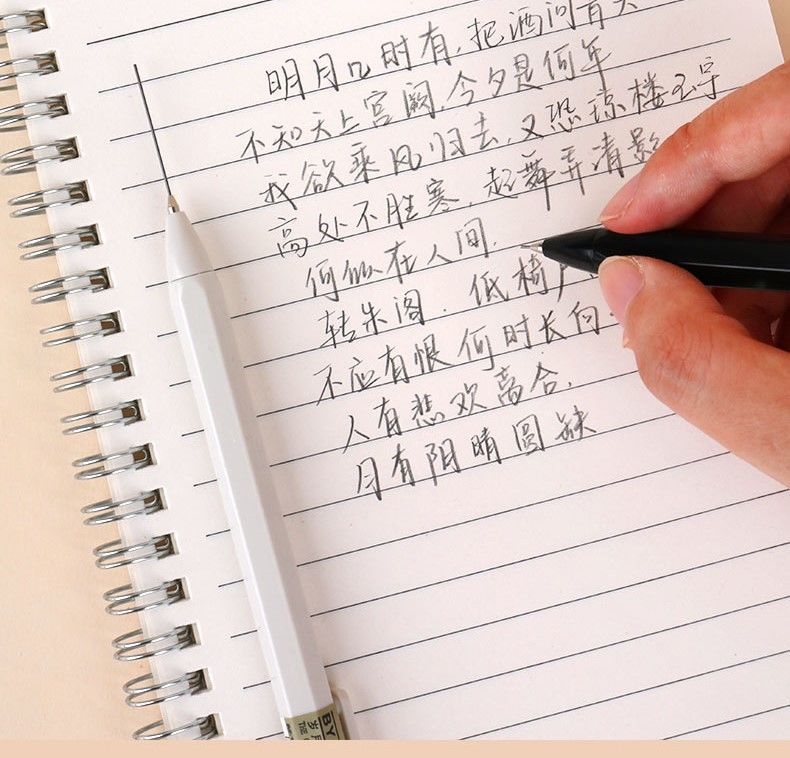 明月几时有，把酒问青天
不知天上宫阙，今夕是何年
我欲乘风归去，又恐琼楼玉宇
高处不胜寒，起舞弄清影
何似在人间.
转朱阁．低椅户
不应有恨 何时长向
人有悲欢离合，
月有阴晴圆缺
BY